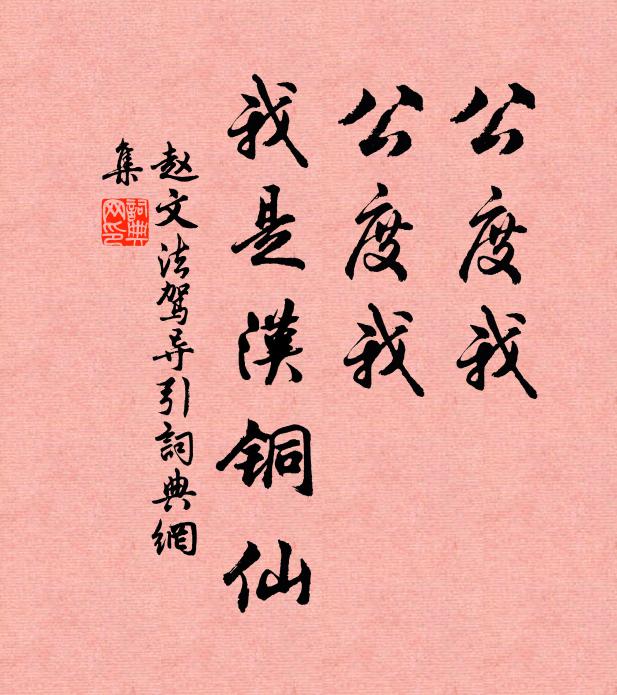 公度我
公度我
我是漢铜仙
赵文法驾导引詞典網
集
詞典
网印